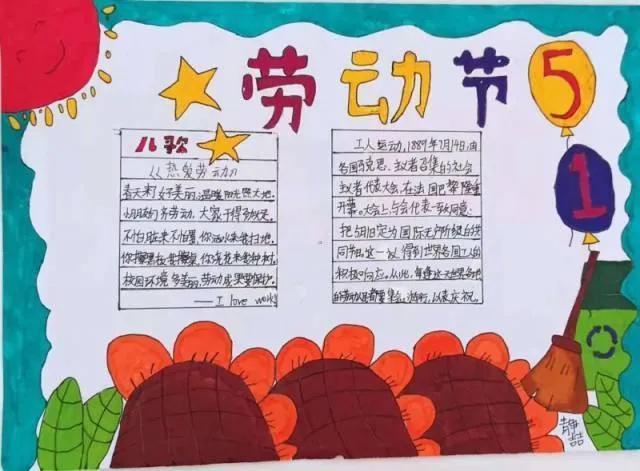 劳动节
5
1
儿歌
《热爱劳动》
春天来了好美丽,温暖阳光照大地.
小朋友们齐劳动,大家干得多欢天.
不怕脏来不怕累,你洒水来我扫地.
校园环境多美丽,劳动成果要保护.
——I love work
工人运动,1889年7月14日,由
各国马克思主义者召集的社会
主义者代表大会,在法国巴黎隆重
开幕。大会上,与会代表一致同意:
把5月1日定为国际无产阶级的共
同节日。这一决议得到世界各国工人的
积极响应。从此,每逢这一天世界各地
的劳动人民都要集会、游行,以表庆祝。
静喆